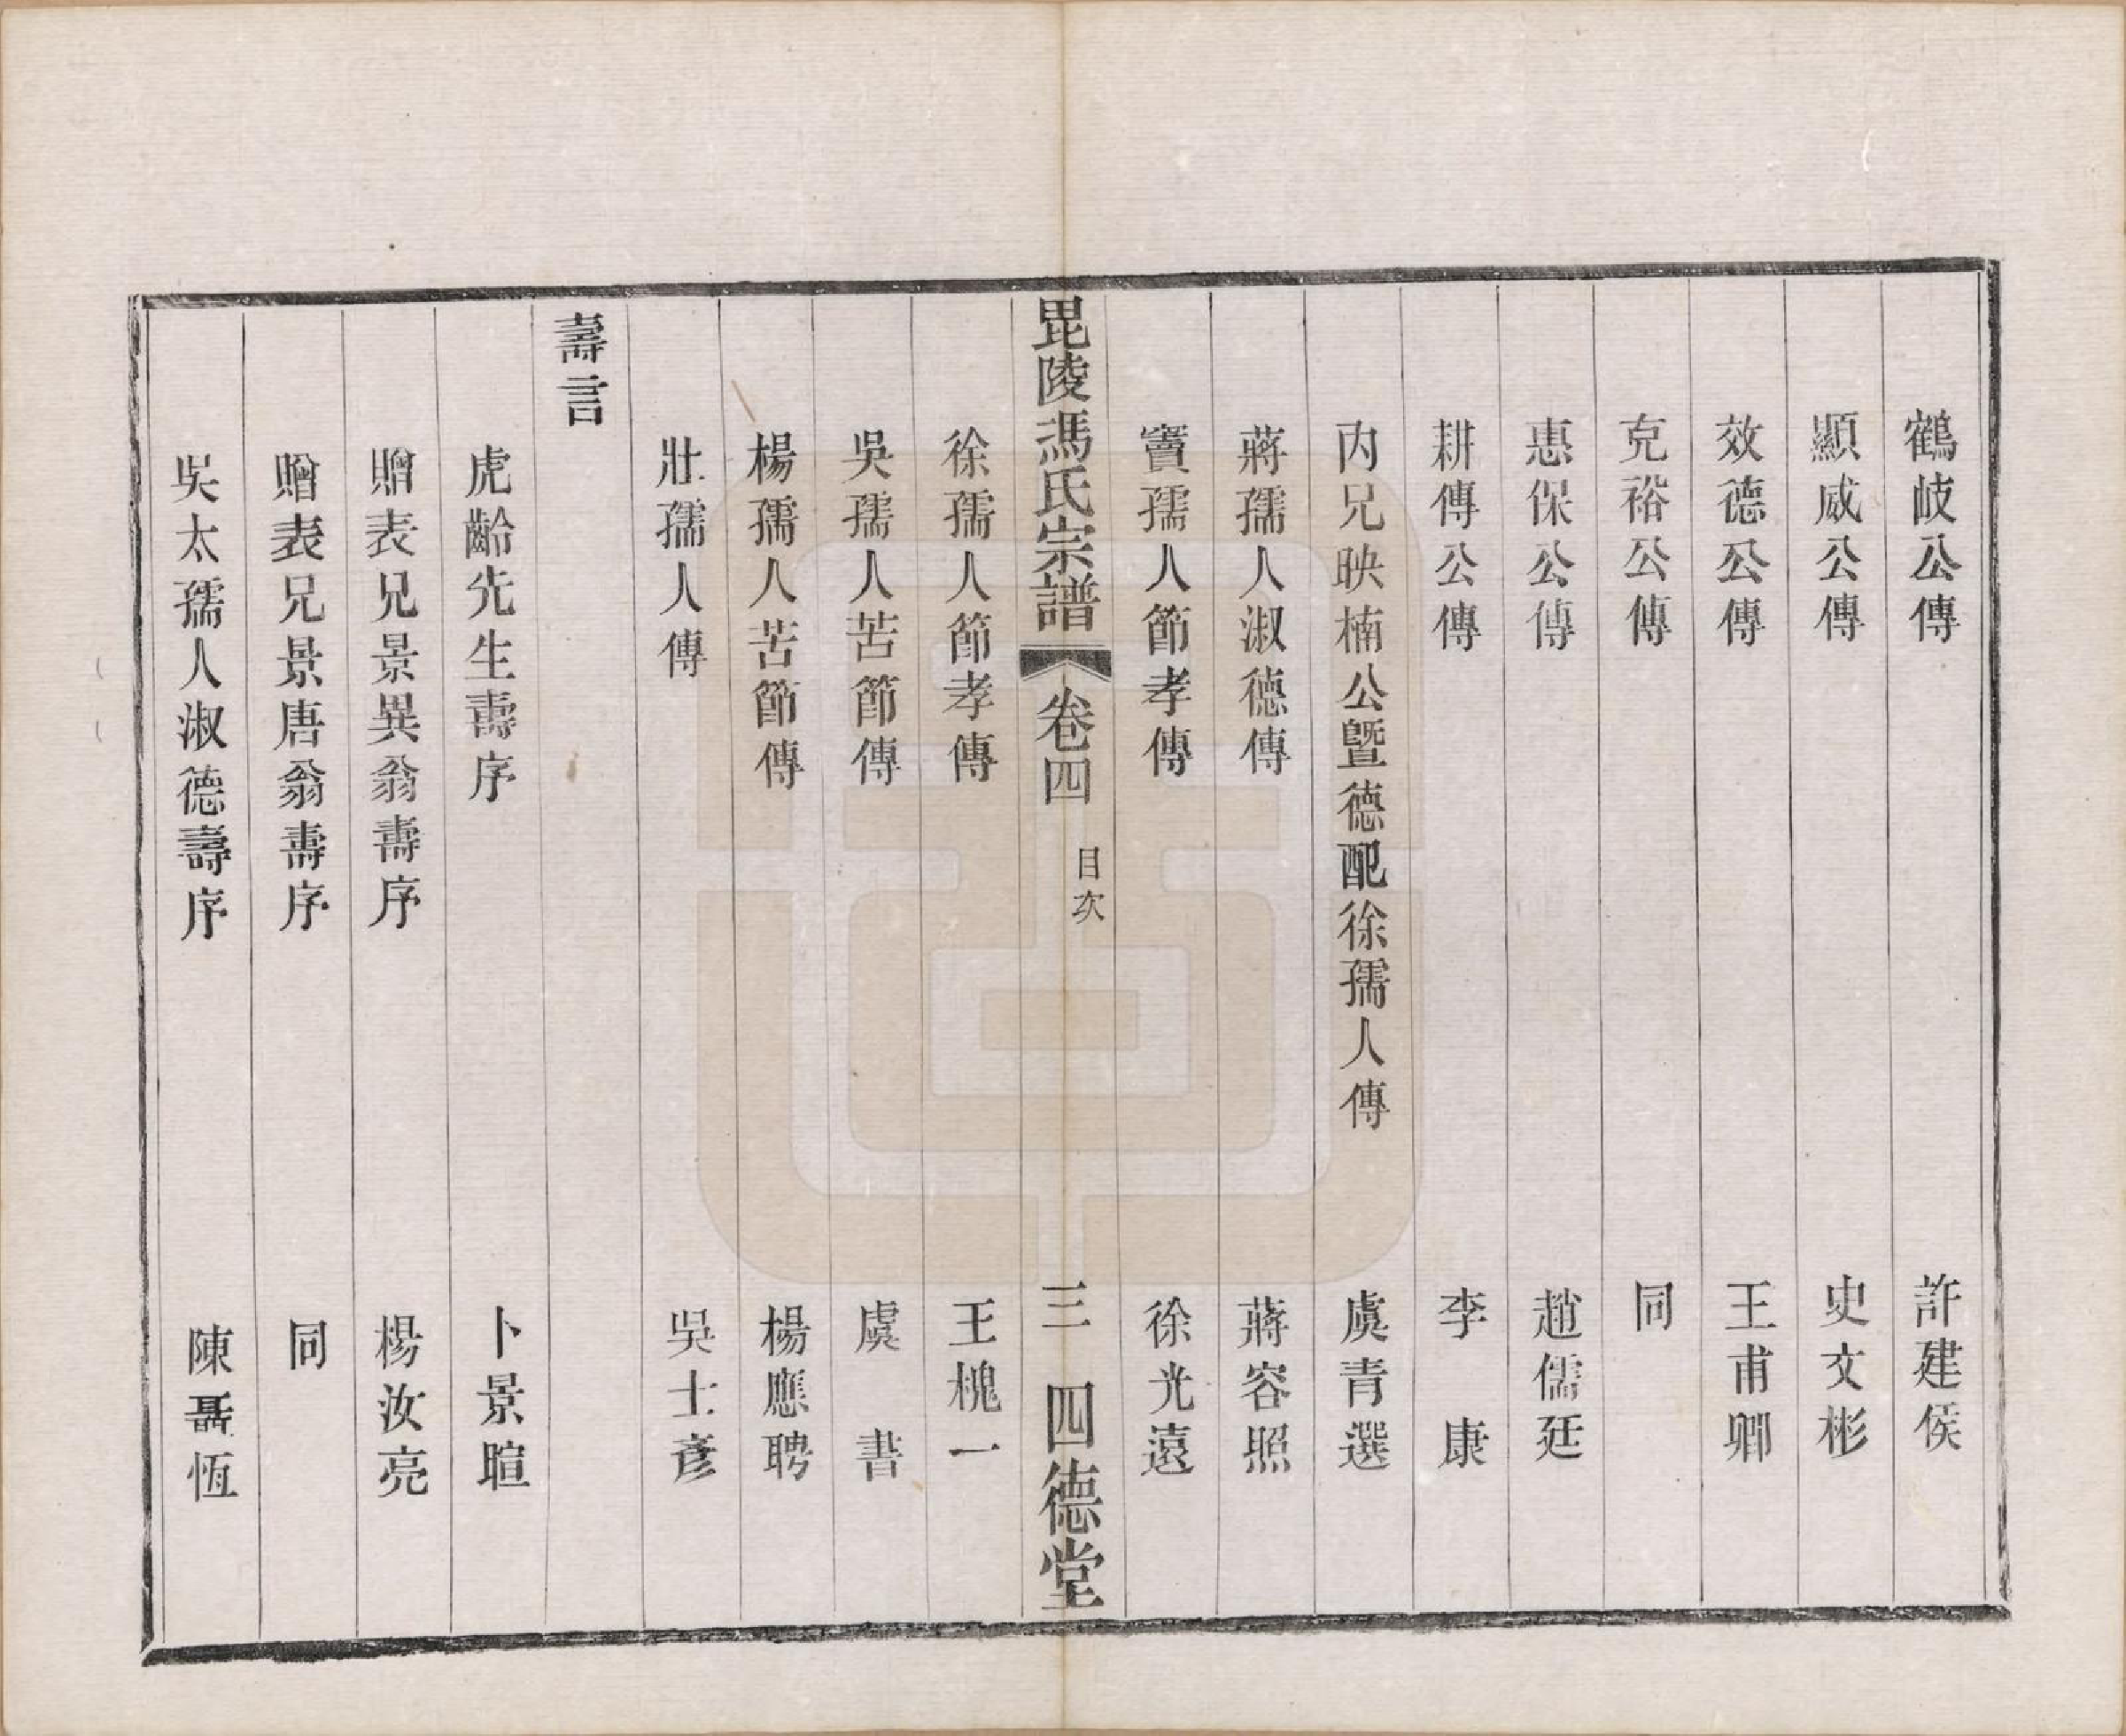 鶴岐公傳　許建侯
顯威公傳　史文彬
效德公傳　王甫卿
克裕公傳　同
惠保公傳　趙儒廷
耕傳公傳　李康
內兄映楠公暨德配徐孺人傳　虞青選
蔣孺人淑德傳　蔣容照
竇孺人節孝傳　徐光遠
毘陵馮氏宗譜　卷四　目次　三　四德堂
徐孺人節孝傳　王槐一
吳孺人苦節傳　虞書
楊孺人苦節傳　楊應聘
壯孺人傳　吳士彥
壽言
虎齡先生壽序　卜景暄
贈表兄景異翁壽序　楊汝亮
贈表兄景唐翁壽序　同
吳太孺人淑德壽序　陳聶恆